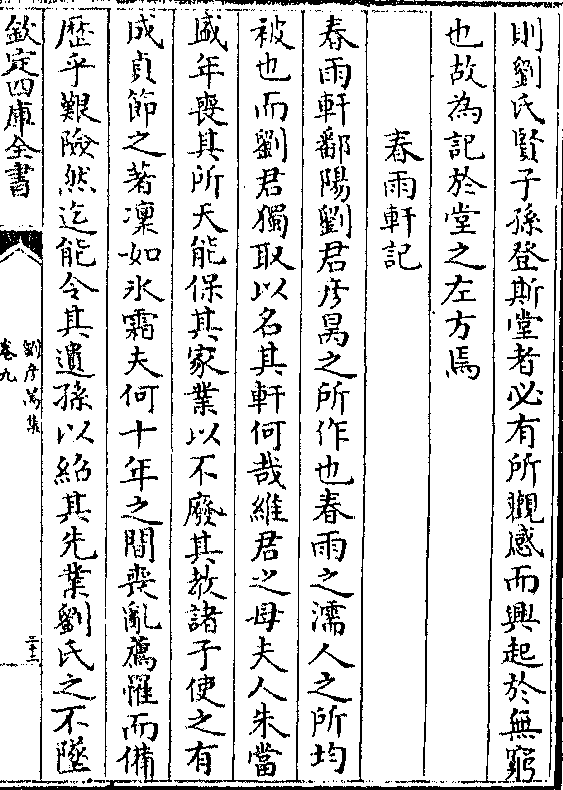 則劉氏賢子孫登斯堂者必有所觀感而興起於無窮
也故為記於堂之左方焉
春雨軒記
春雨軒鄱陽劉君彦昺之所作也春雨之濡人之所均
被也而劉君獨取以名其軒何哉維君之母夫人朱當
盛年喪其所天能保其家業以不廢其教諸子使之有
成貞節之著凜如氷霜夫何十年之間喪亂薦罹而備
歴乎艱險然迄能令其遺孫以紹其先業劉氏之不墜
欽定四庫全書
劉彦昺集
卷九
二十二